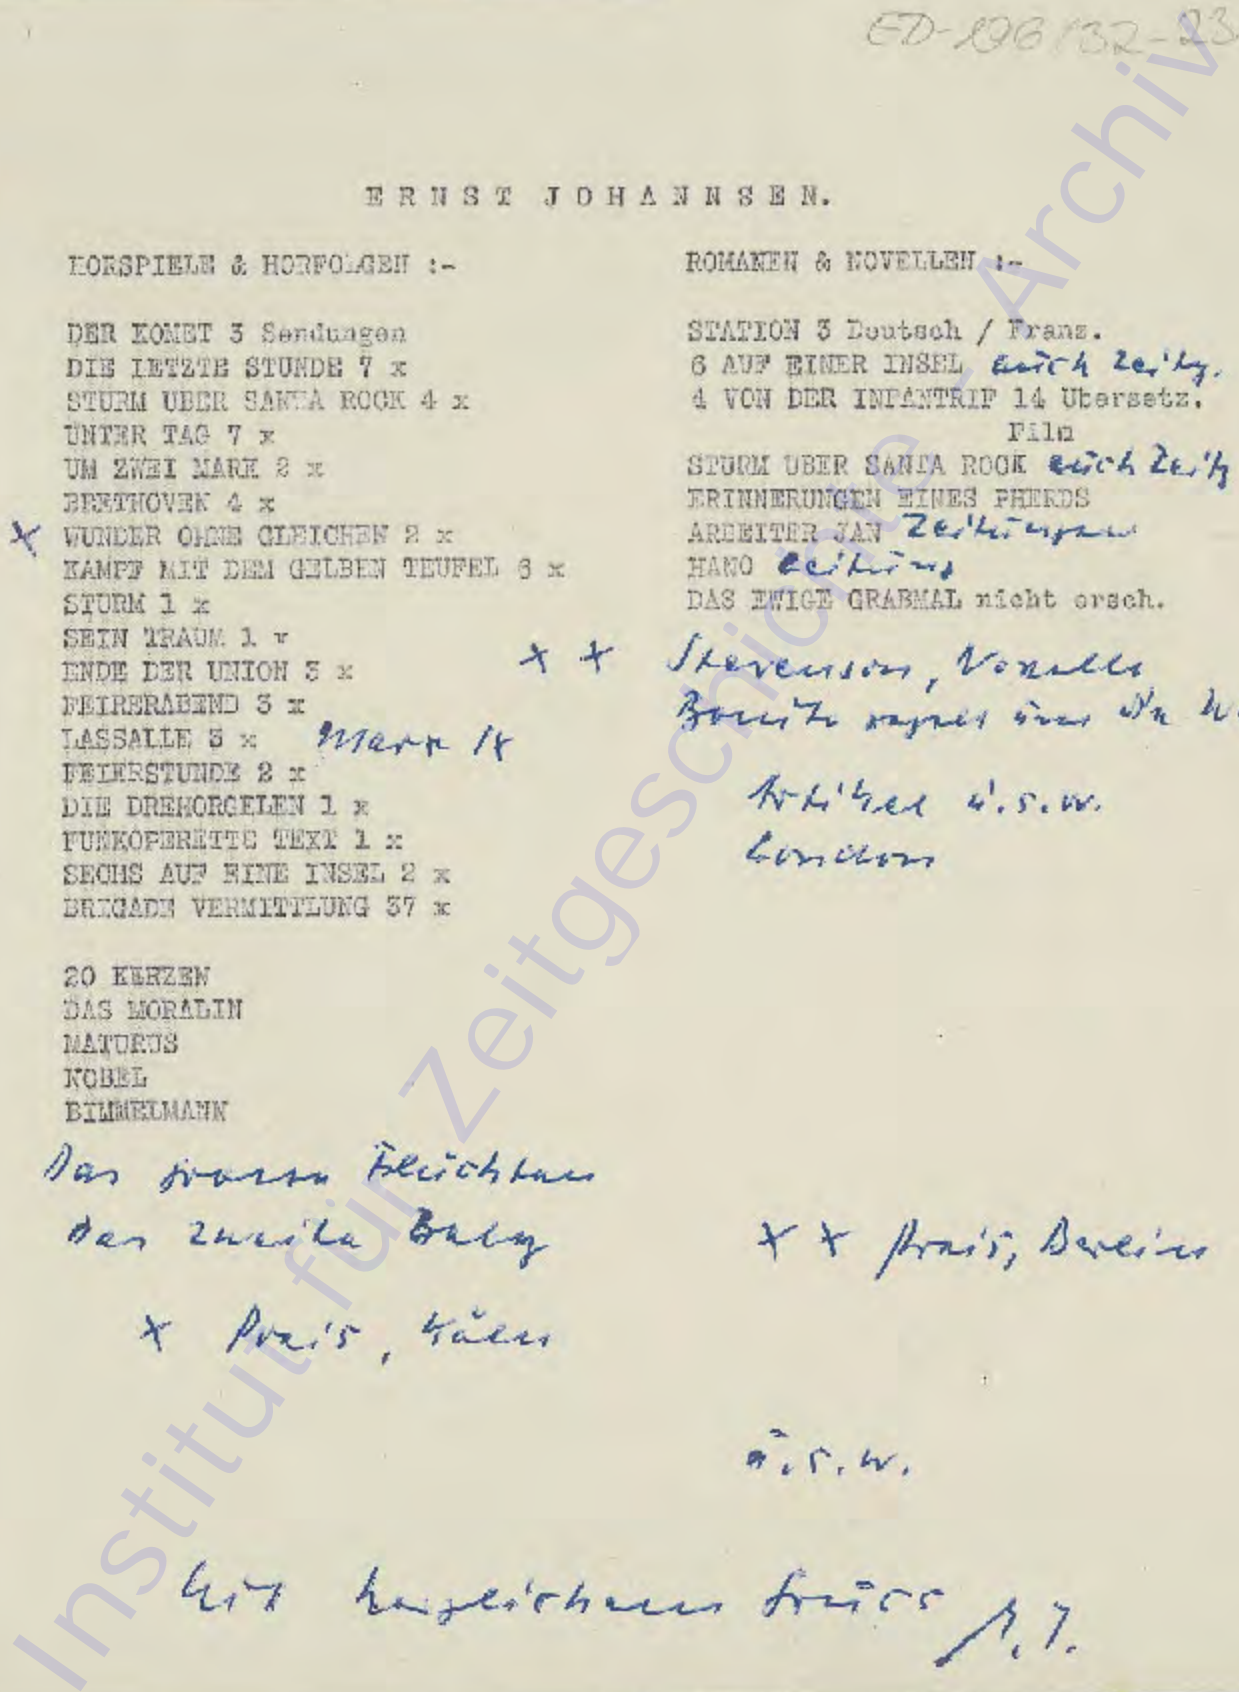 ERNST JOHANNSEN.
HORSPIELE & HORFOLGEN :-
DER KOMET 3 Sendungen
DIE LETZTE STUNDE 7 x
STURM UBER SANTA ROCK 4 x
UNTER TAG 7 x
UM ZWEI MARK 2 x
BEETHOVEN 4 x
x WUNDER OHNE GLEICHEN 2 x
KAMPF MIT DEM GELBEN TEUFEL 6 x
STURM 1 x
SEIN TRAUM 1 x
ENDE DER UNION 3 x
FEIRERABEND 3 x
LASSALLE 3 x Marx 1x
FEIERSTUNDE 2 x
DIE DREHORGELEN 1 x
FUNKOPERETTE TEXT 1 x
SECHS AUF EINE INSEL 2 x
BRIGADE VERMITTLUNG 37 x
20 KERZEN
DAS MORALIN
MATURUS
NOBEL
BIMMELMANN
Das
Das zweite Baby
x Preis, Köln
ROMANEN & NOVELLEN :-
STATION 3 Deutsch / Franz.
6 AUF EINER INSEL auch Zeitg.
4 VON DER INFANTRIE 14 Ubersetz.
Film
STURM UBER SANTA ROCK auch Zeitg
ERINNERUNGEN EINES PHERDS
ARBEITER JAN Zeitungen
HANO Zeitung
DAS EWIGE GRABMAL nicht ersch.
x x Stevenson, Novelle
Artikel u.s.w.
London
x x Preis, Berlin
u.s.w.
Mit herzlichem Gruss
Institut für Zeitgeschichte - Archiv